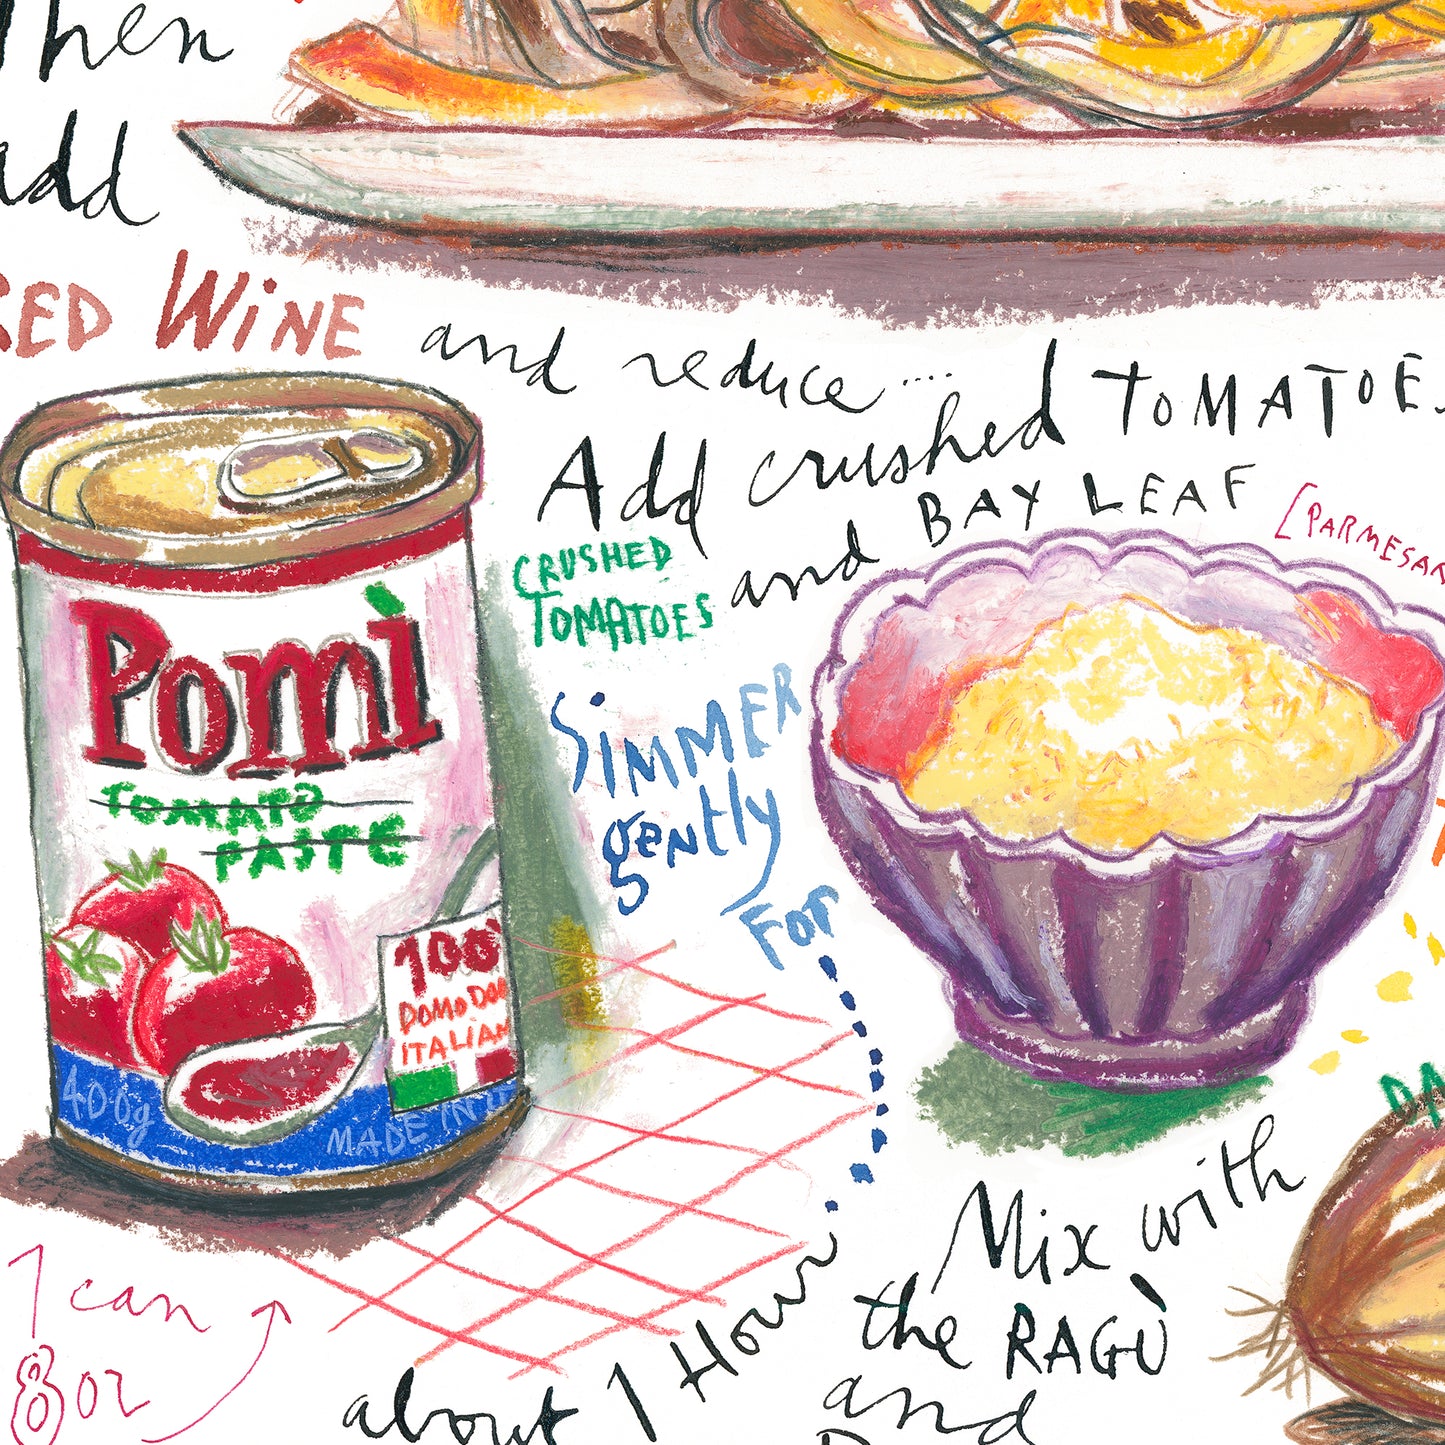 Then
add
RED WiNE
and reduce....
Add crushed TOMATOE
and BAY LEAF
[PARMESAN
CRUSHED
TOMATOES
Pomì
TOMATO
PASTE
100
POMODO
ITALIAN
400g
MADE IN
SiMMER
gently
For
about 1 Hour
1 can
8 oz
Mix with
the RAGÙ
and